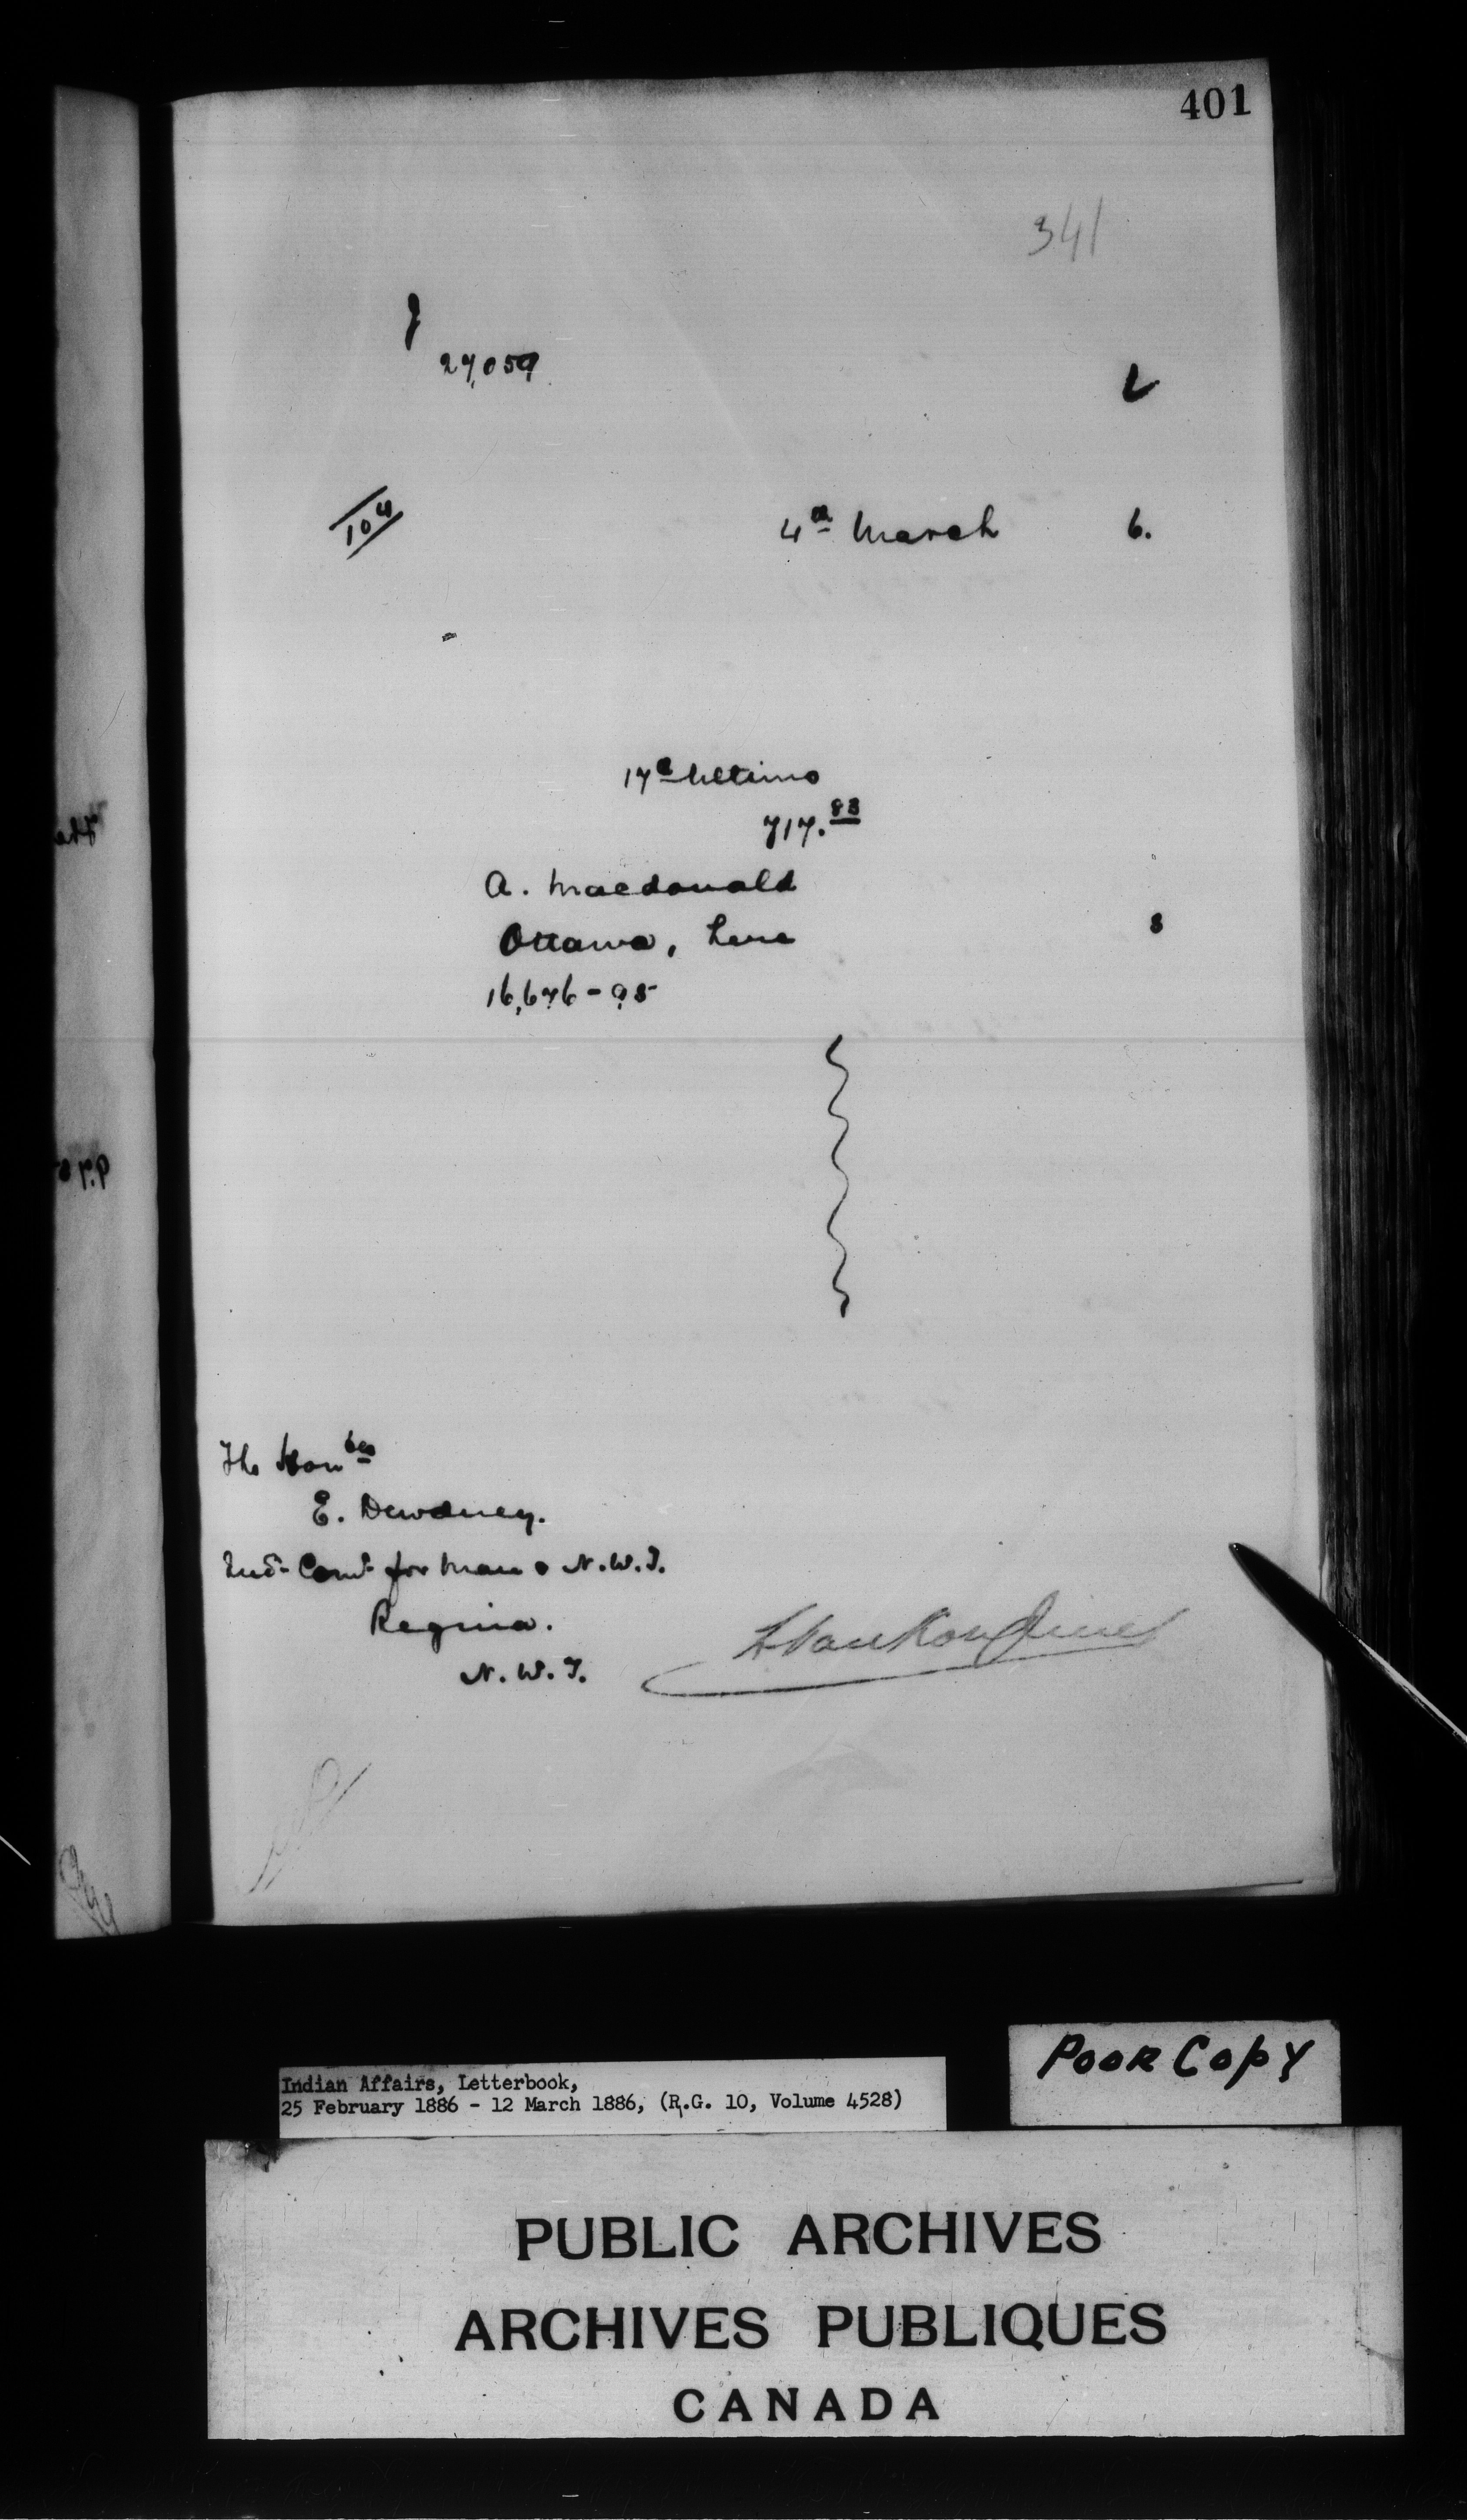 401
341
27,059
104
4th March 6.
17th Ultimo
717.83
A. Macdonald
Ottawa, here
s
16,676-95
The Honble
E. Dewdney.
Ind- Comr for Man & N.W.T.
Regina.
N.W.T.
L Vankoughnet
Poor Copy
Indian Affairs, Letterbook,
25 February 1886 - 12 March 1886, (R.G. 10, Volume 4528)
PUBLIC ARCHIVES
ARCHIVES PUBLIQUES
CANADA